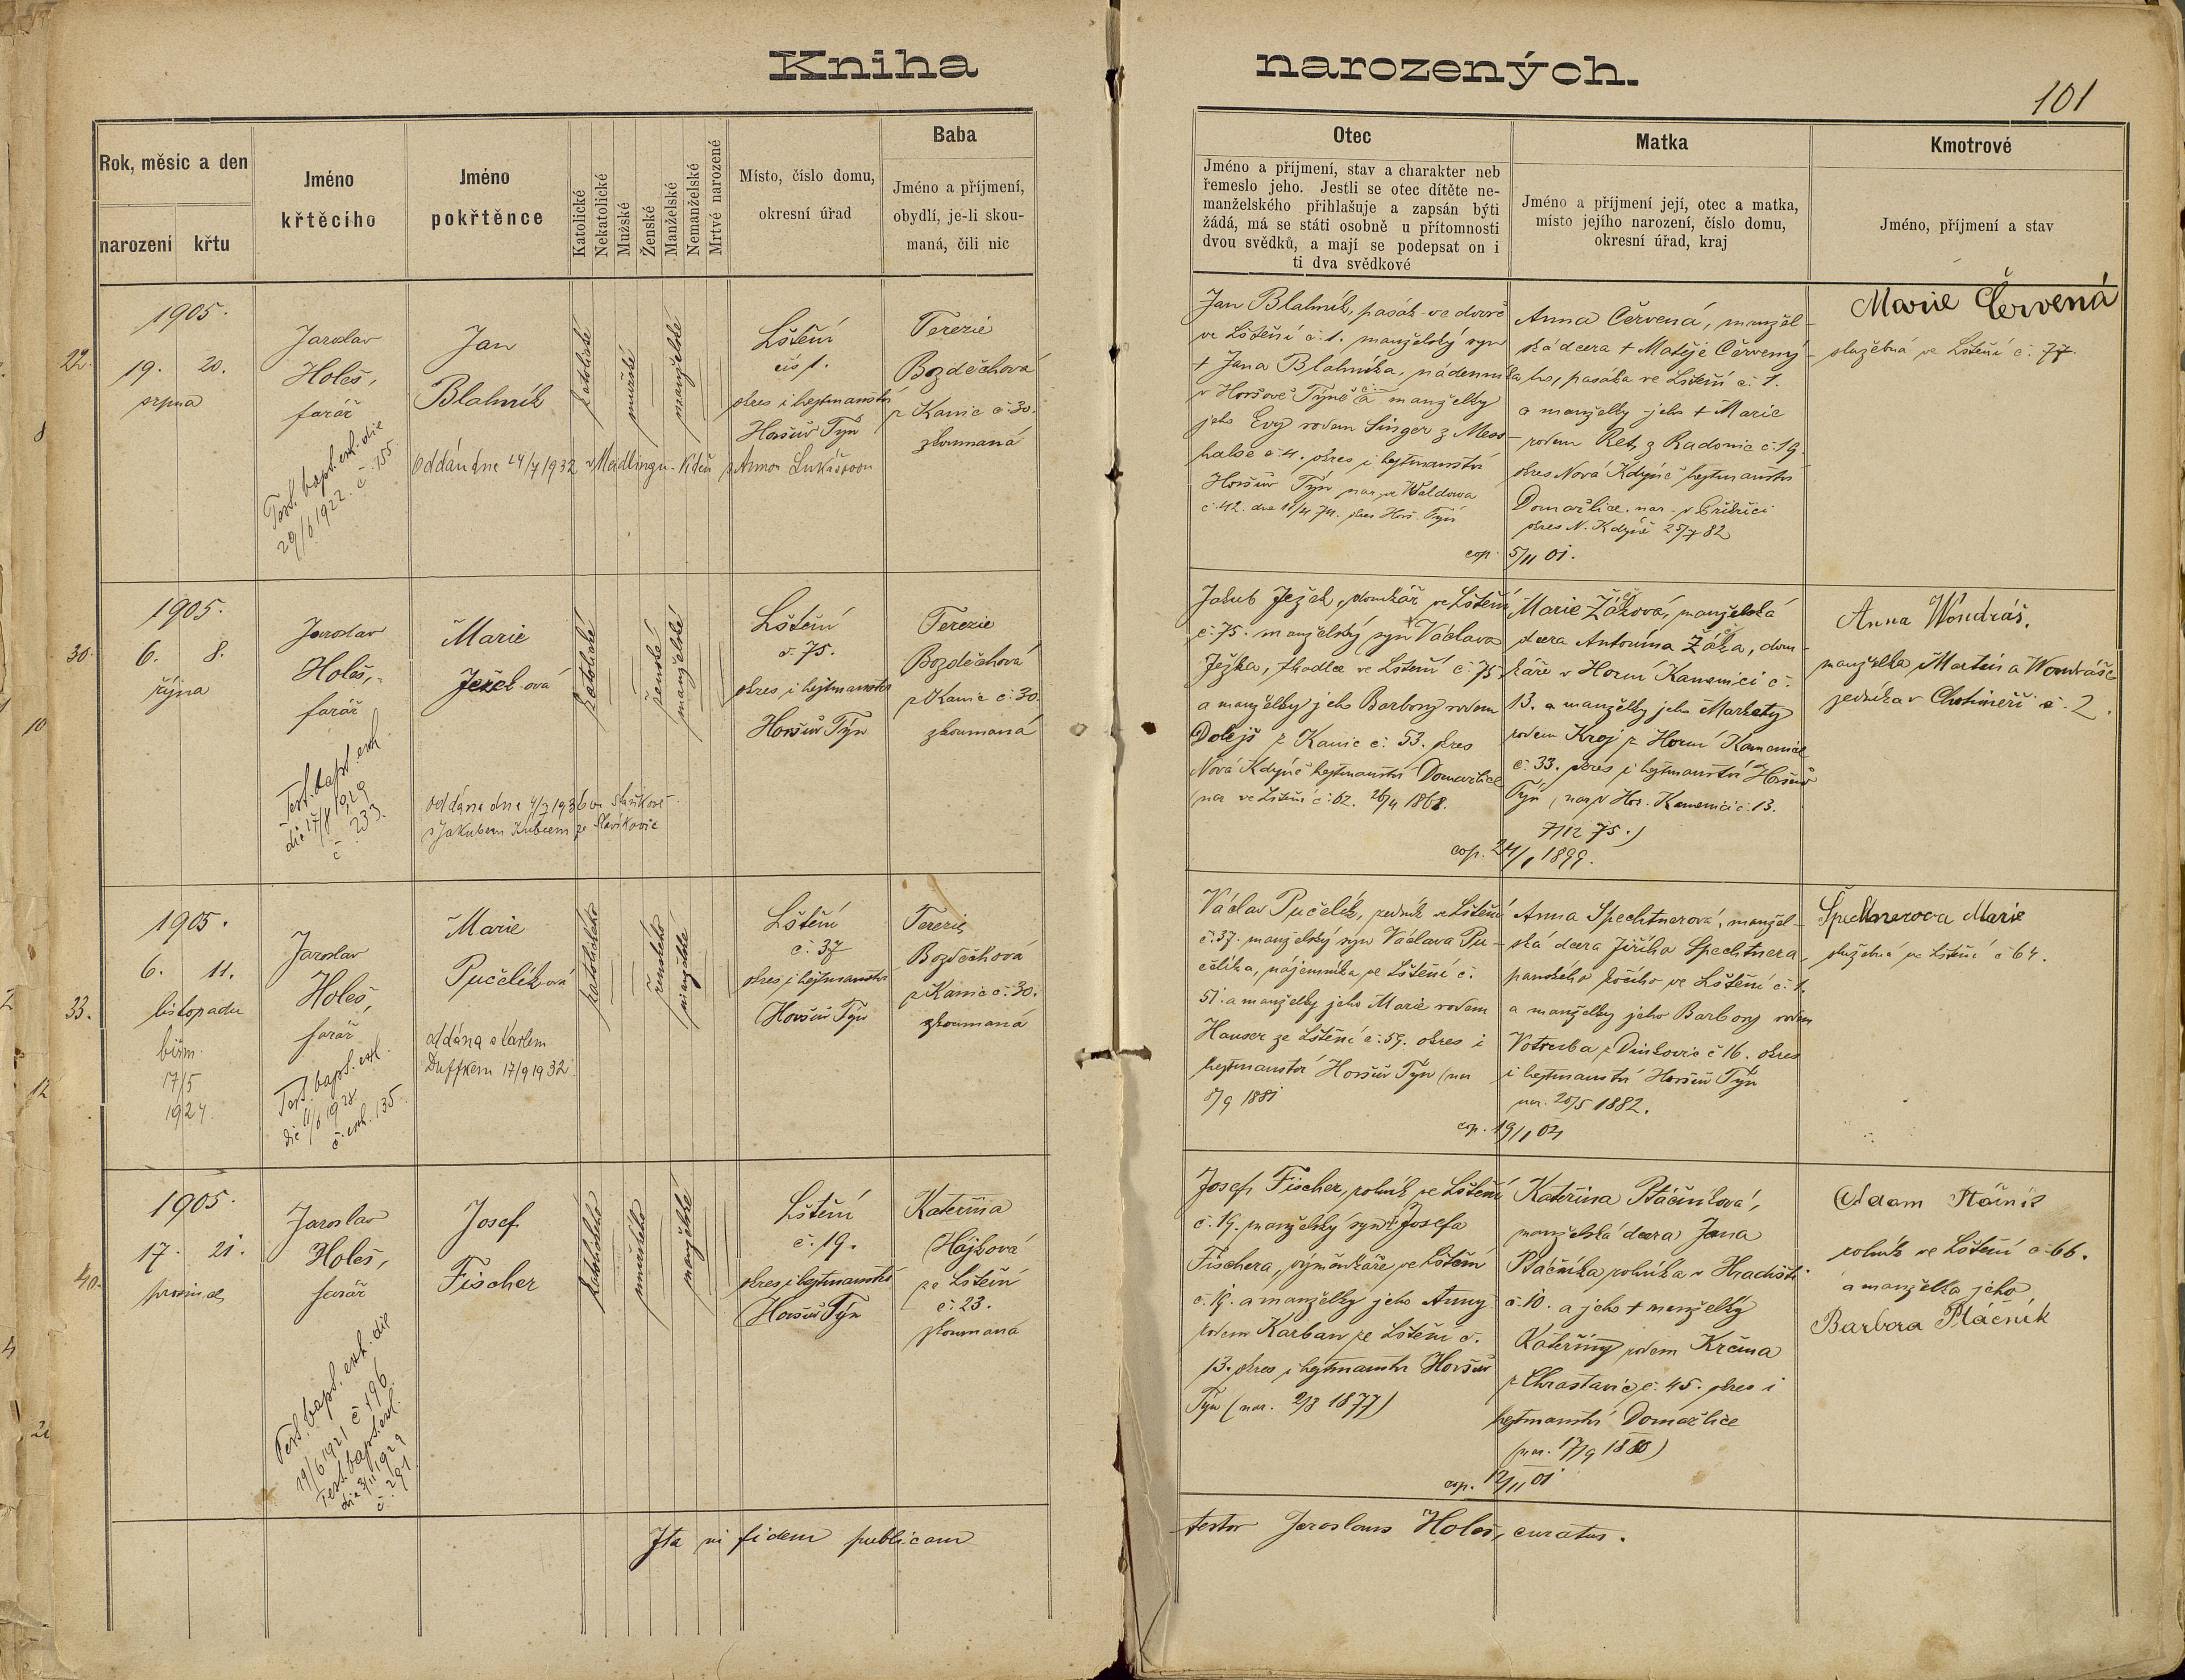 Kniha narozených.
101
Rok, měsíc a den
narození
křtu
Jméno
křtěcího
Jméno
pokřtěnce
Katolické
Nekatolické
Mužské
Ženské
Manželské
Nemanželské
Mrtvé narozené
Místo, číslo domu,
okresní úřad
Baba
Jméno a příjmení,
obydlí, je-li skou-
maná, čili nic
Otec
Jméno a příjmení, stav a charakter neb
řemeslo jeho. Jestli se otec dítěte ne-
manželského přihlašuje a zapsán býti
žádá, má se státi osobně u přítomnosti
dvou svědků, a mají se podepsat on i
ti dva svědkové
Matka
Jméno a příjmení její, otec a matka,
místo jejího narození, číslo domu,
okresní úřad, kraj
Kmotrové
Jméno, příjmení a stav
22.
1905.
19. 20.
srpna
Jaroslav
Holeš,
farář
Test. bapt. exh. die
29/6 1922. č. 155.
Jan
Blahník
oddán dne 24/7 1932 v Meidlingu-Vídeň s Annou Lukášovou
katolické
mužské
manželské
Lštění
čís 1.
okres i hejtmanství
Horšův Týn
Terezie
Bozděchová
z Kanic č. 30.
zkoumaná
Jan Blahník, pasák ve dvoře
ve Lštění č. 1. manželský syn
+ Jana Blahníka, nádenníka
v Horšově Týně a manželky
jeho Evy rodem Singer z Mess-
halse č. 4. okres i hejtmanství
Horšův Týn nar. ve Waldowa
č. 42. dne 11/4 74. okres Horš. Týn
Anna Červená, manžel-
ská dcera + Matěje Červený-
ho, pasáka ve Lštění č. 1.
a manželky jeho + Marie
rodem Ret, z Radonic č. 19.
okres Nová Kdyně hejtmanství
Domažlice, nar. v
okres N. Kdyně 25/7 82
cop. 5/11 01.
Marie Červená
služebná ve Lštění č. 77.
30.
1905.
6. 8.
října
Jaroslav
Holeš,
farář
Test. bapt. exh.
die 17/8 1929
č. 233.
Marie
Ježek-ová
oddána dne 4/7 1936 ve Staňkově
s Jakubem Kubcem ze Slavíkovic
katolické
ženské
manželské
Lštění
č. 75.
okres i hejtmanství
Horšův Týn
Terezie
Bozděchová
z Kanic č. 30.
zkoumaná
Jakub Ježek, domkář ve Lštění
č. 75. manželský syn Václava
Ježka, tkadlce ve Lštění č. 75
a manželky jeho Barbory rodem
Dolejš z Kanic č. 53. okres
Nová Kdyně hejtmanství Domažlice
(nar. ve Lštění č. 62. 26/4 1868.
Marie Žáková, manželská
dcera Antonína Žáka, dom-
káře v Horní Kamenici č.
13. a manželky jeho Markety
rodem Kroj z Horní Kamenice
č. 33. okres i hejtmanství Horšův
Týn (nar. v Hor. Kamenici č. 13.
7/12 75.)
cop. 24/1 1899.
Anna Wondráš,
manželka Martina Wondráše
rolníka v Chotiměři č. 2.
33.
1905.
6. 11.
listopadu
biřm.
17/5
1924.
Jaroslav
Holeš,
farář
Test. bapt. exh.
die 11/6 1928
č. exh. 135.
Marie
Pučelík-ová
oddána s Karlem
Duffkem 17/9 1932
katolického
ženského
manželské
Lštění
č. 37
okres i hejtmanství
Horšův Týn
Terezie
Bozděchová
z Kanic č. 30.
zkoumaná
Václav Pučelík, rolník ve Lštění
č. 37. manželský syn Václava Pu-
čelíka, nájemníka ve Lštění č.
51. a manželky jeho Marie rodem
Hauser ze Lštění č. 59. okres i
hejtmanství Horšův Týn (nar.
5/9 1881
Anna Spechtnerová, manžel-
ská dcera Jiřího Spechtnera,
panského kočího ve Lštění č. 1.
a manželky jeho Barbory rodem
Votruba z Dinkovic č. 16. okres
i hejtmanství Horšův Týn
nar. 20/5 1882.
cop. 19/1 04
Špechtnerova Marie
služebná ve Lštění č. 64.
40.
1905.
17. 21.
prosince
Jaroslav
Holeš,
farář
Test. bapt. exh. die
19/6 1921 č. 196
Test. bapt. exh.
die 3/11 1929
č. 291
Josef
Fischer
katolického
mužského
manželské
Lštění
č. 19.
okres i hejtmanství
Horšův Týn
Kateřina
Hájková
ze Lštění
č. 23.
zkoumaná
Josef Fischer, rolník ve Lštění
č. 19. manželský syn + Josefa
Fischera, výměnkáře ve Lštění
č. 19. a manželky jeho Anny
rodem Karban ze Lštění č.
13. okres i hejtmanství Horšův
Týn (nar. 2/3 1877)
Kateřina Ptáčníková,
manželská dcera Jana
Ptáčníka rolníka v Hradišti
č. 10. a jeho + manželky
Kateřiny rodem Krčma
z Chrastavic č. 45. okres i
hejtmanství Domažlice
(nar. 17/9 1880)
cop. 12/11 01
Adam Ptáčník
rolník ve Lštění č. 66.
a manželka jeho
Barbora Ptáčník
Ita in fidem publicam testor Jaroslaus Holeš, curatus.